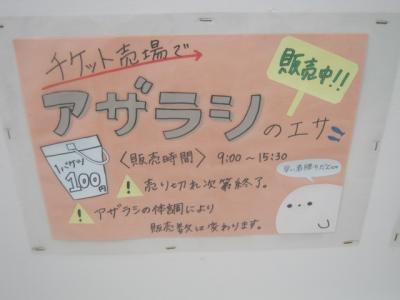 チケット売場で
販売中!!
アザラシのエサ
1バケツ
100円
〈販売時間〉 9:00～15:30
売り切れ次第終了。
アザラシの体調により
販売数は変わります。